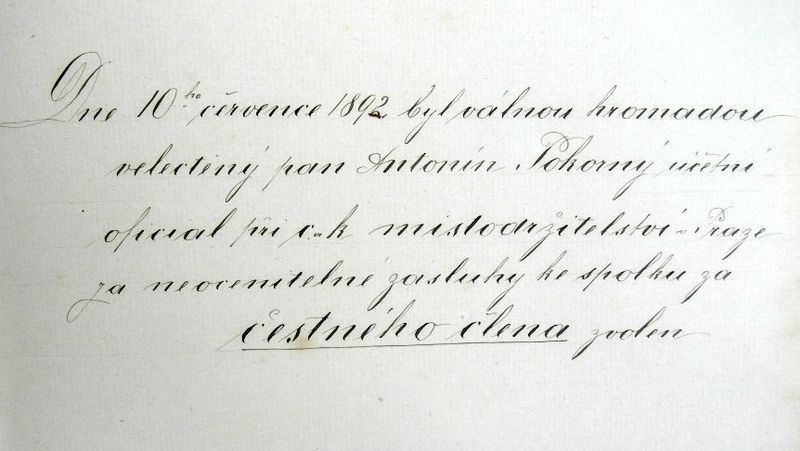 Dne 10.ho července 1892 byl válnou hromadou
velectěný pan Antonín Pokorný účetní
oficial při c. k. místodržitelství v Praze
za neocenitelné zásluhy ke spolku za
čestného člena zvolen